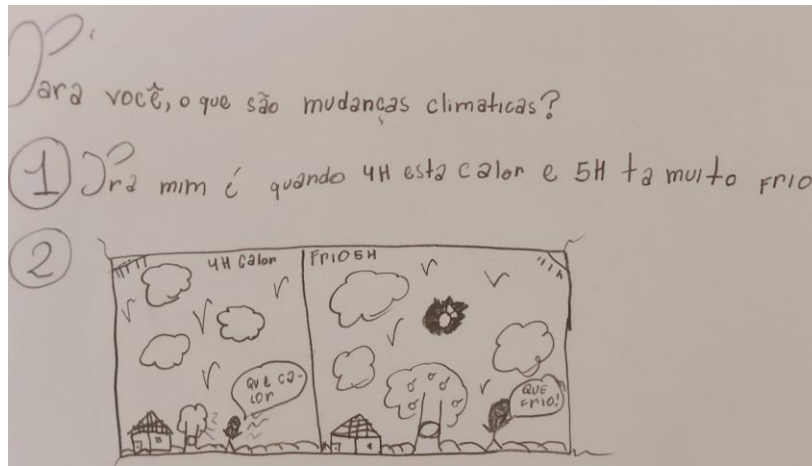 Para você, o que são mudanças climaticas?
1 Pra mim é quando 4H esta calor e 5H ta muito FRIO
2
4H Calor
FRIO 5H
QUE CA-
LOR
QUE
FRIO!